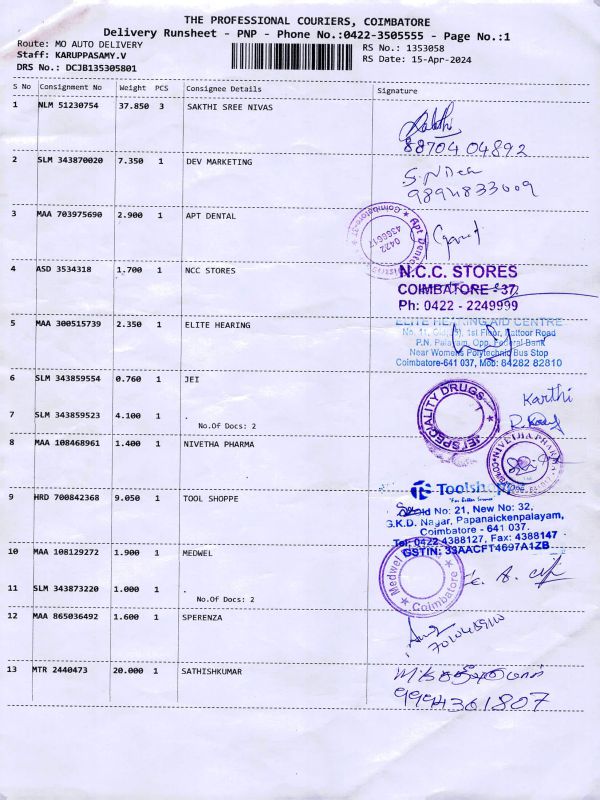 THE PROFESSIONAL COURIERS, COIMBATORE
Delivery Runsheet - PNP - Phone No.:0422-3505555 - Page No.:1
Route: MO AUTO DELIVERY RS No.: 1353058
Staff: KARUPPASAMY.V RS Date: 15-Apr-2024
DRS No.: DCJB135305801
S No Consignment No Weight PCS Consignee Details Signature
1 NLM 51230754 37.850 3 SAKTHI SREE NIVAS
Sakthi
8870404892
2 SLM 343870020 7.350 1 DEV MARKETING
3 MAA 703975690 2.900 1 APT DENTAL
4 ASD 3534318 1.700 1 NCC STORES
N.C.C. STORES
COIMBATORE - 37
Ph: 0422 - 2249999
5 MAA 300515739 2.350 1 ELITE HEARING
ELITE HEARING AID CENTRE
1st Floor, Sattoor Road
P.N. Palayam, Opp. Federal Bank
Near Womens Polytechnic Bus Stop
Coimbatore-641 037, Mob: 84282 82810
6 SLM 343859554 0.760 1 JEI
JEI SPECIALITY DRUGS
Karthi
7 SLM 343859523 4.100 1 .
No.Of Docs: 2
8 MAA 108468961 1.400 1 NIVETHA PHARMA
NIVETHA PHARMA
9 HRD 700842368 9.050 1 TOOL SHOPPE
Old No: 21, New No: 32,
S.K.D. Nagar, Papanaickenpalayam,
Coimbatore - 641 037.
Tel: 0422 4388127, Fax: 4388147
GSTIN: 33AACFT4697A1ZB
10 MAA 108129272 1.900 1 MEDWEL
Medwel
Coimbatore
11 SLM 343873220 1.000 1 .
No.Of Docs: 2
12 MAA 865036492 1.600 1 SPERENZA
13 MTR 2440473 20.000 1 SATHISHKUMAR
9994361807